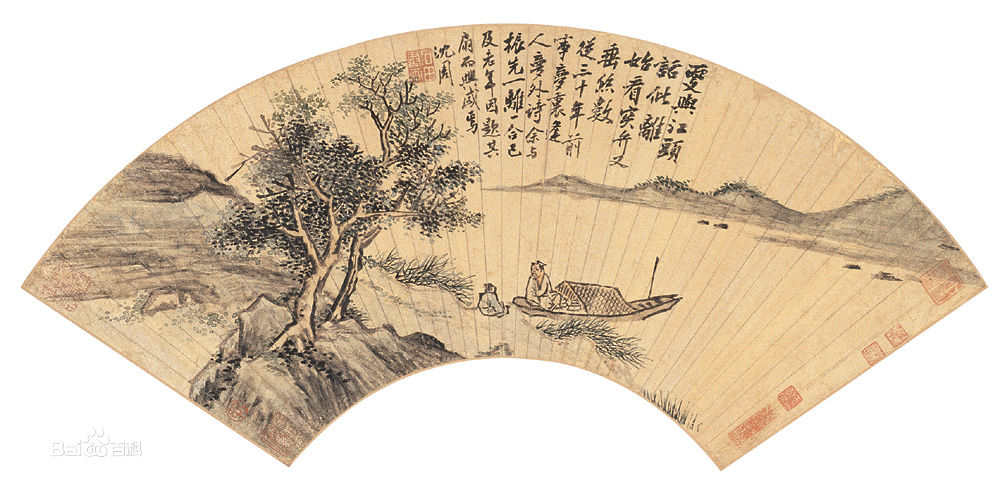 與江頭
話仳離
始看突弁又
垂絲數
從三十年前
事夢裏逢
人夢外詩余与
振先一離一合已
及老年因題其
扇而興感焉
沈周
Bai百科